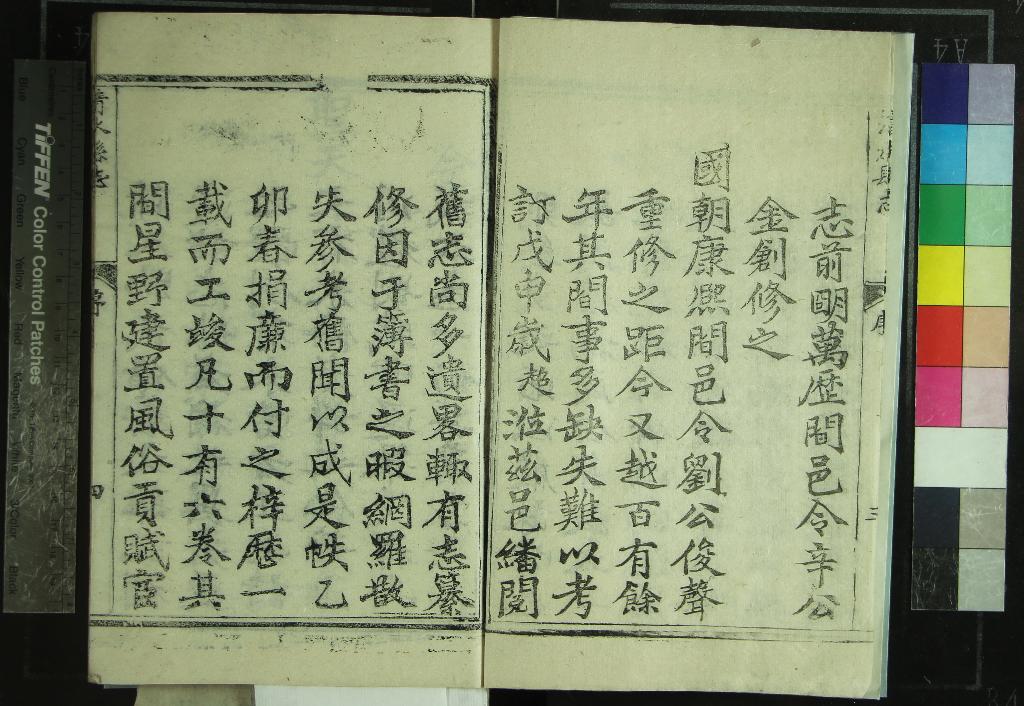 志前明萬歷間邑令辛公
金創修之
國朝康熈間邑令劉公俊聲
重修之距今又越百有餘
年其間事多缺失難以考
訂戊申歲超涖茲邑繙閱
舊志尚多遺畧輙有志纂
修因于薄書之暇網羅散
失參考舊聞以成是帙乙
卯春捐亷而付之梓歷一
載而工竣凡十有六卷其
間星野建置風俗貢賦官
清水縣志
序
三
清水縣志
序
四
TIFFEN Color Control Patches
Blue Cyan Green Yellow Red Magenta Black
A4